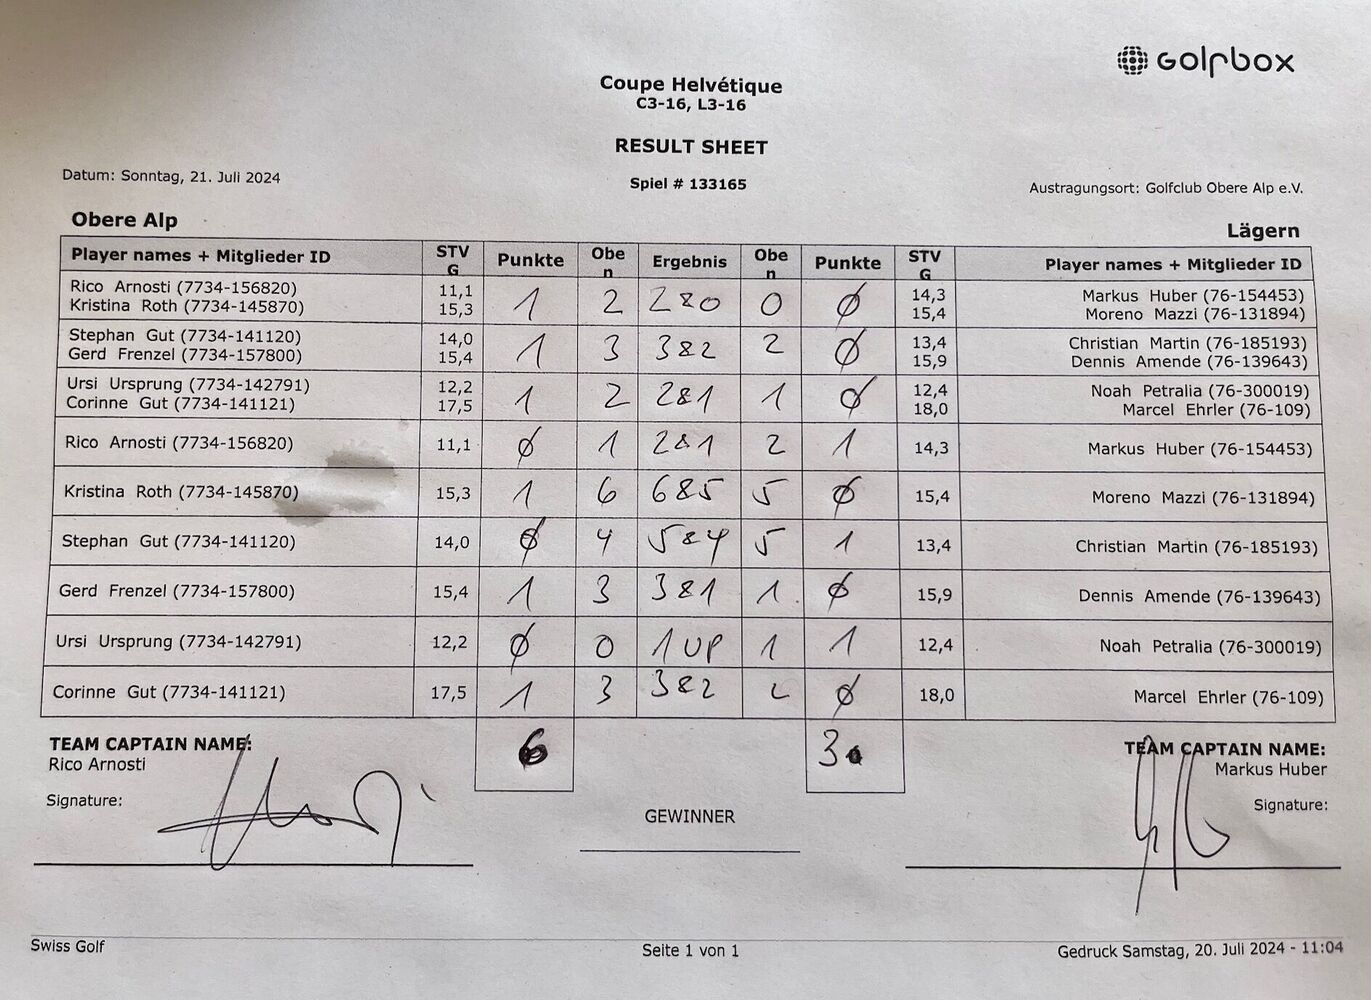 GOLFBOX
Coupe Helvétique
C3-16, L3-16
RESULT SHEET
Datum: Sonntag, 21. Juli 2024
Spiel # 133165
Austragungsort: Golfclub Obere Alp e.V.
Obere Alp
Lägern
Player names + Mitglieder ID STVG Punkte Oben Ergebnis Oben Punkte STVG Player names + Mitglieder ID
Rico Arnosti (7734-156820) 11,1 14,3 Markus Huber (76-154453)
1 2 2&0 0 Ø
Kristina Roth (7734-145870) 15,3 15,4 Moreno Mazzi (76-131894)
Stephan Gut (7734-141120) 14,0 13,4 Christian Martin (76-185193)
1 3 3&2 2 Ø
Gerd Frenzel (7734-157800) 15,4 15,9 Dennis Amende (76-139643)
Ursi Ursprung (7734-142791) 12,2 12,4 Noah Petralia (76-300019)
1 2 2&1 1 Ø
Corinne Gut (7734-141121) 17,5 18,0 Marcel Ehrler (76-109)
Rico Arnosti (7734-156820) 11,1 Ø 1 2&1 2 1 14,3 Markus Huber (76-154453)
Kristina Roth (7734-145870) 15,3 1 6 6&5 5 Ø 15,4 Moreno Mazzi (76-131894)
Stephan Gut (7734-141120) 14,0 Ø 4 5&4 5 1 13,4 Christian Martin (76-185193)
Gerd Frenzel (7734-157800) 15,4 1 3 3&1 1 Ø 15,9 Dennis Amende (76-139643)
Ursi Ursprung (7734-142791) 12,2 Ø 0 1UP 1 1 12,4 Noah Petralia (76-300019)
Corinne Gut (7734-141121) 17,5 1 3 3&2 2 Ø 18,0 Marcel Ehrler (76-109)
6 3
TEAM CAPTAIN NAME: TEAM CAPTAIN NAME:
Rico Arnosti Markus Huber
Signature: Signature:
GEWINNER
Swiss Golf Seite 1 von 1 Gedruck Samstag, 20. Juli 2024 - 11:04